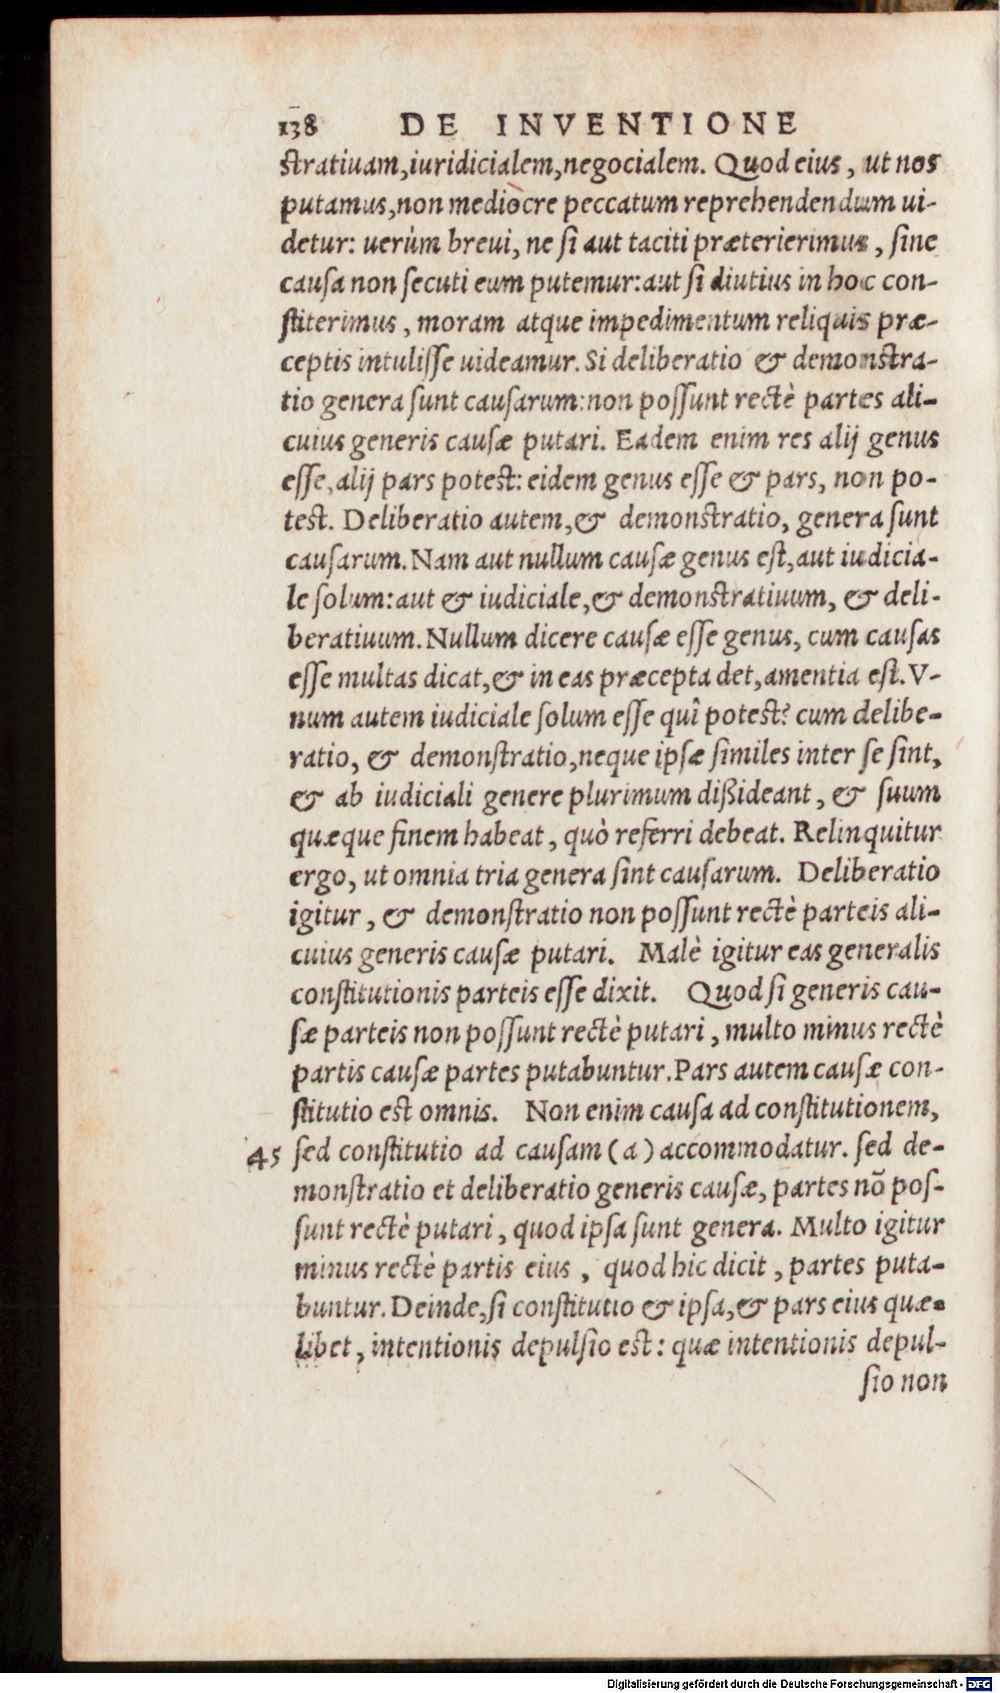 138 DE INVENTIONE
strativam,iuridicialem,negocialem. Quod eius, ut nos
putamus,non mediocre peccatum reprehendendum ui-
detur: uerùm breui, ne si aut taciti præterierimus, sine
causa non secuti eum putemur:aut si diutius in hoc con-
stiterimus, moram atque impedimentum reliquis præ-
ceptis intulisse uideamur. Si deliberatio & demonstra-
tio genera sunt causarum:non possunt rectè partes ali-
cuius generis causæ putari. Eadem enim res alij genus
esse,alij pars potest: eidem genus esse & pars, non po-
test. Deliberatio autem,& demonstratio, genera sunt
causarum. Nam aut nullum causæ genus est,aut iudicia-
le solum:aut & iudiciale,& demonstratiuum, & deli-
beratiuum. Nullum dicere causæ esse genus, cum causas
esse multas dicat,& in eas præcepta det,amentia est. V-
num autem iudiciale solum esse quî potest? cum delibe-
ratio, & demonstratio,neque ipsæ similes inter se sint,
& ab iudiciali genere plurimum dißideant, & suum
quæque finem habeat, quò referri debeat. Relinquitur
ergo, ut omnia tria genera sint causarum. Deliberatio
igitur, & demonstratio non possunt rectè parteis ali-
cuius generis causæ putari. Malè igitur eas generalis
constitutionis parteis esse dixit. Quod si generis cau-
sæ parteis non possunt rectè putari, multo minus rectè
partis causæ partes putabuntur. Pars autem causæ con-
stitutio est omnis. Non enim causa ad constitutionem,
45 sed constitutio ad causam (a) accommodatur. sed de-
monstratio et deliberatio generis causæ, partes nõ pos-
sunt rectè putari, quod ipsa sunt genera. Multo igitur
minus rectè partis eius, quod hic dicit, partes puta-
buntur. Deinde,si constitutio & ipsa,& pars eius quæ-
libet, intentionis depulsio est: quæ intentionis depul-
sio non
Digitalisierung gefördert durch die Deutsche Forschungsgemeinschaft - DFG